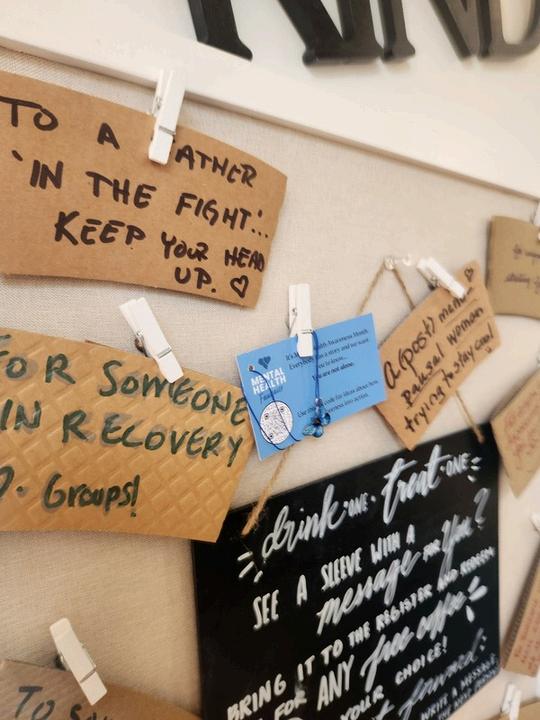 KIND
TO A FATHER
'IN THE FIGHT'...
KEEP YOUR HEAD
UP. ♡
FOR SOMEONE
IN RECOVERY
Groups!
MENTAL
HEALTH
It's Mental Health Awareness Month.
Everybody has a story and we want
you to know...
You are not alone.
code for ideas about how
awareness into action.
a (post) meno
pausal woman
trying to stay cool
drink·one·treat·one
SEE A SLEEVE WITH A
message FOR You?
BRING IT TO THE REGISTER AND REDEEM
FOR ANY free coffee
YOUR CHOICE!
forward:
WRITE A MESSAGE
TO